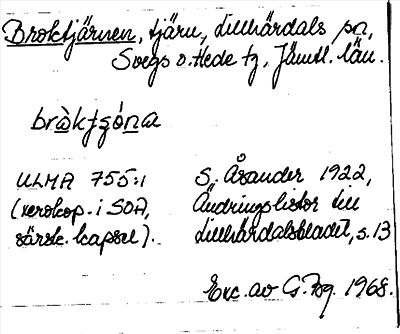 Broktjärnen, tjärn, Lillhärdals sn,
Svegs o. Hede tg, Jämtl. län.
bròktʂó̱na
ULMA 755:1 S. Åsander 1922,
(xerokop. i SOA, Ändringslistor till
särsk. kapsel). Lillhärdalsbladet, s. 13
Exc. av G. Fog. 1968.